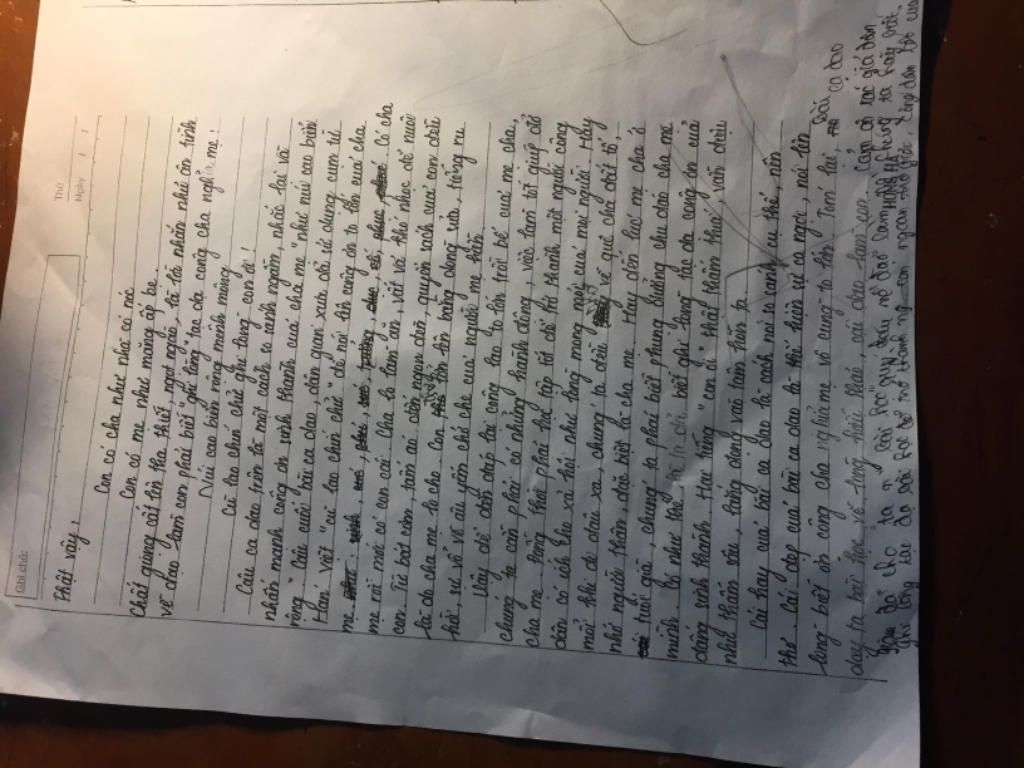 Ghi chú:
Thứ
Ngày / /
Thật vậy,
Con có cha như nhà có nóc
Con có mẹ như măng ấp bẹ.
Chất giọng cất lên tha thiết, ngọt ngào, là lời nhắn nhủ ân tình
về đạo làm con phải biết "ghi lòng" tạc dạ công cha nghĩa mẹ!
Núi cao biển rộng mênh mông
Cù lao chín chữ ghi lòng con ơi!
Câu ca dao trên là một cách so sánh ngầm, nhắc lại và
nhấn mạnh công ơn sinh thành của cha mẹ "như núi cao biển
rộng". Câu cuối bài ca dao, dân gian xưa đã sử dụng cụm từ
Hán Việt "cù lao chín chữ" để nói lên công ơn to lớn của cha
mẹ. Có cha
mẹ rồi mới có con cái. Cha lo làm ăn, vất vả khó nhọc để nuôi
con. Từ bát cơm, tấm áo đến ngọn đèn, quyển sách của con đều
là do cha mẹ lo cho. Con lớn lên bằng dòng sữa, tiếng ru
hời, sự vỗ về âu yếm chở che của người mẹ hiền.
Vậy để đền đáp lại công lao to lớn trời bể của mẹ cha,
chúng ta cần phải có những hành động, việc làm tốt giúp đỡ
cha mẹ, đồng thời phải học tập tốt để trở thành một người công
dân có ích cho xã hội như lòng mong mỏi của mọi người. Hãy
mỗi khi đi đâu xa, chúng ta đều về quê cha đất tổ,
nhớ người thân, đặc biệt là cha mẹ. Hay đến lúc mẹ cha ở
tuổi già, chúng ta phải biết phụng dưỡng chu đáo cha mẹ
mình. Có như thế mới tỏ chữ biết ghi lòng tạc dạ công ơn của
đấng sinh thành. Hai tiếng "con ơi" thật thấm thía, vần điệu
như thấm sâu, lắng đọng vào tâm hồn ta.
Cái hay của bài ca dao là cách nói so sánh cụ thể, nên
thơ. Cái đẹp của bài ca dao là thể hiện và ca ngợi, nói lên
lòng biết ơn công cha nghĩa mẹ vô cùng to lớn. Tóm lại, bài ca dao
dạy ta bài học về lòng hiếu thảo, về đạo làm con. Cảm ơn tác giả dân
gian đã cho ta một bài học quý báu về đạo làm con. Chúng ta hãy biết
HỒNG HÀ